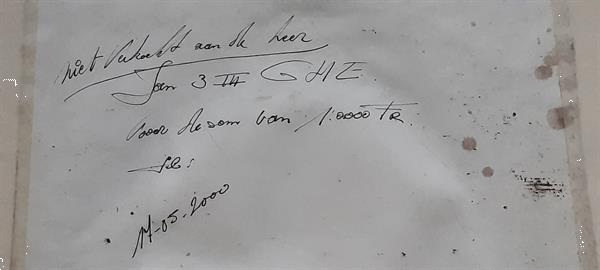 niet verkocht aan de heer
Jan 3 III GHE.
voor de som van 1.0000 FR.
17-05-2000